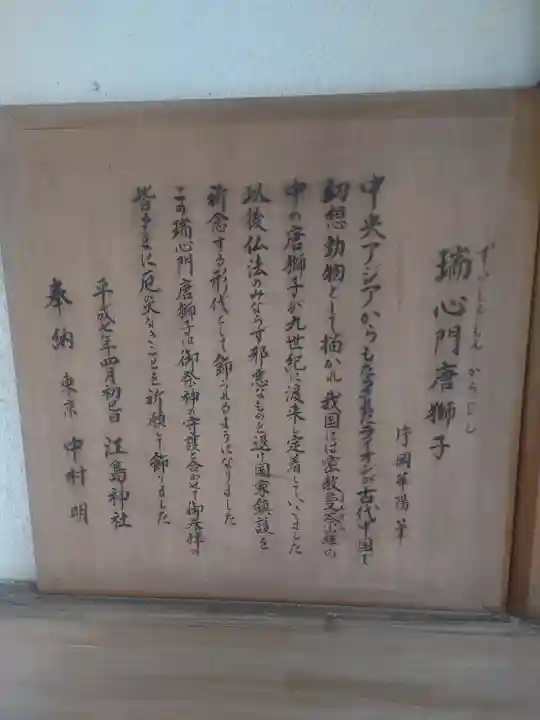 ずいしんもん からじし
瑞心門唐獅子
片岡華陽筆
中央アジアからもたらされたライオンが古代中国で
幻想動物として描かれ我国には密教曼荼羅の
中の唐獅子が九世紀に渡来し定着していました
以後仏法のみならず邪悪なものを退け国家鎮護を
祈念する形代として飾られるようになりました
この瑞心門唐獅子は御祭神の守護と合わせて御参拝の
皆さまに厄災なきことを祈願し飾りました
平成七年四月初巳日 江島神社
奉納 東京 中村明